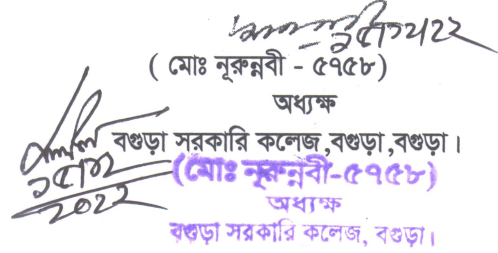 ১৫/১২/২২
( মোঃ নূরুন্নবী - ৫৭৫৮)
অধ্যক্ষ
বগুড়া সরকারি কলেজ,বগুড়া,বগুড়া।
১৫/১২
২০২২
(মোঃ নূরুন্নবী-৫৭৫৮)
অধ্যক্ষ
বগুড়া সরকারি কলেজ, বগুড়া।